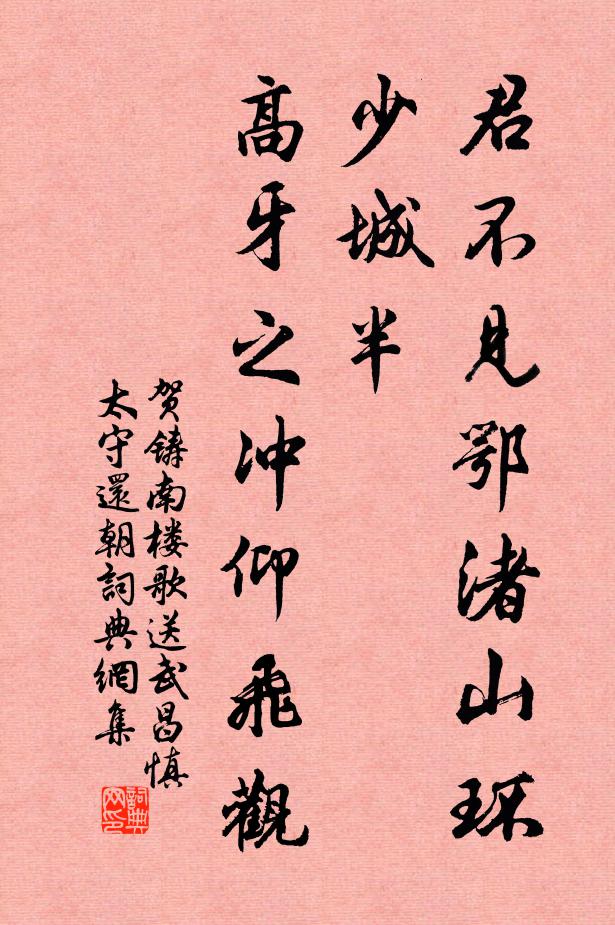 君不见鄂渚山环
少城半
高牙之冲仰飛觀
贺铸南楼歌送武昌慎
太守還朝詞典網集
詞典网印